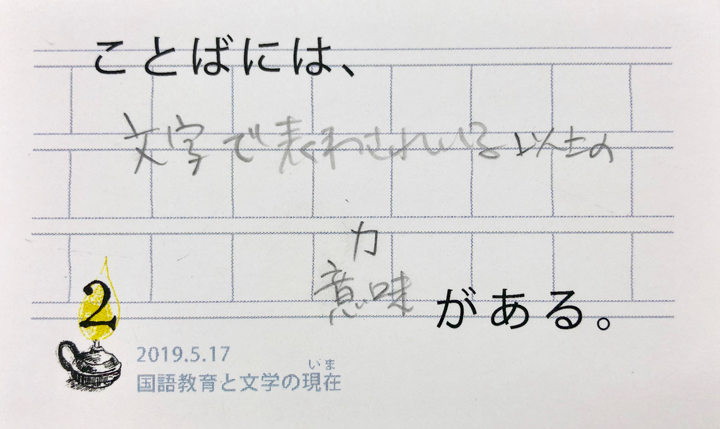 ことばには、
文字で表わされている以上の
力
意味がある。
2
2019.5.17
いま
国語教育と文学の現在